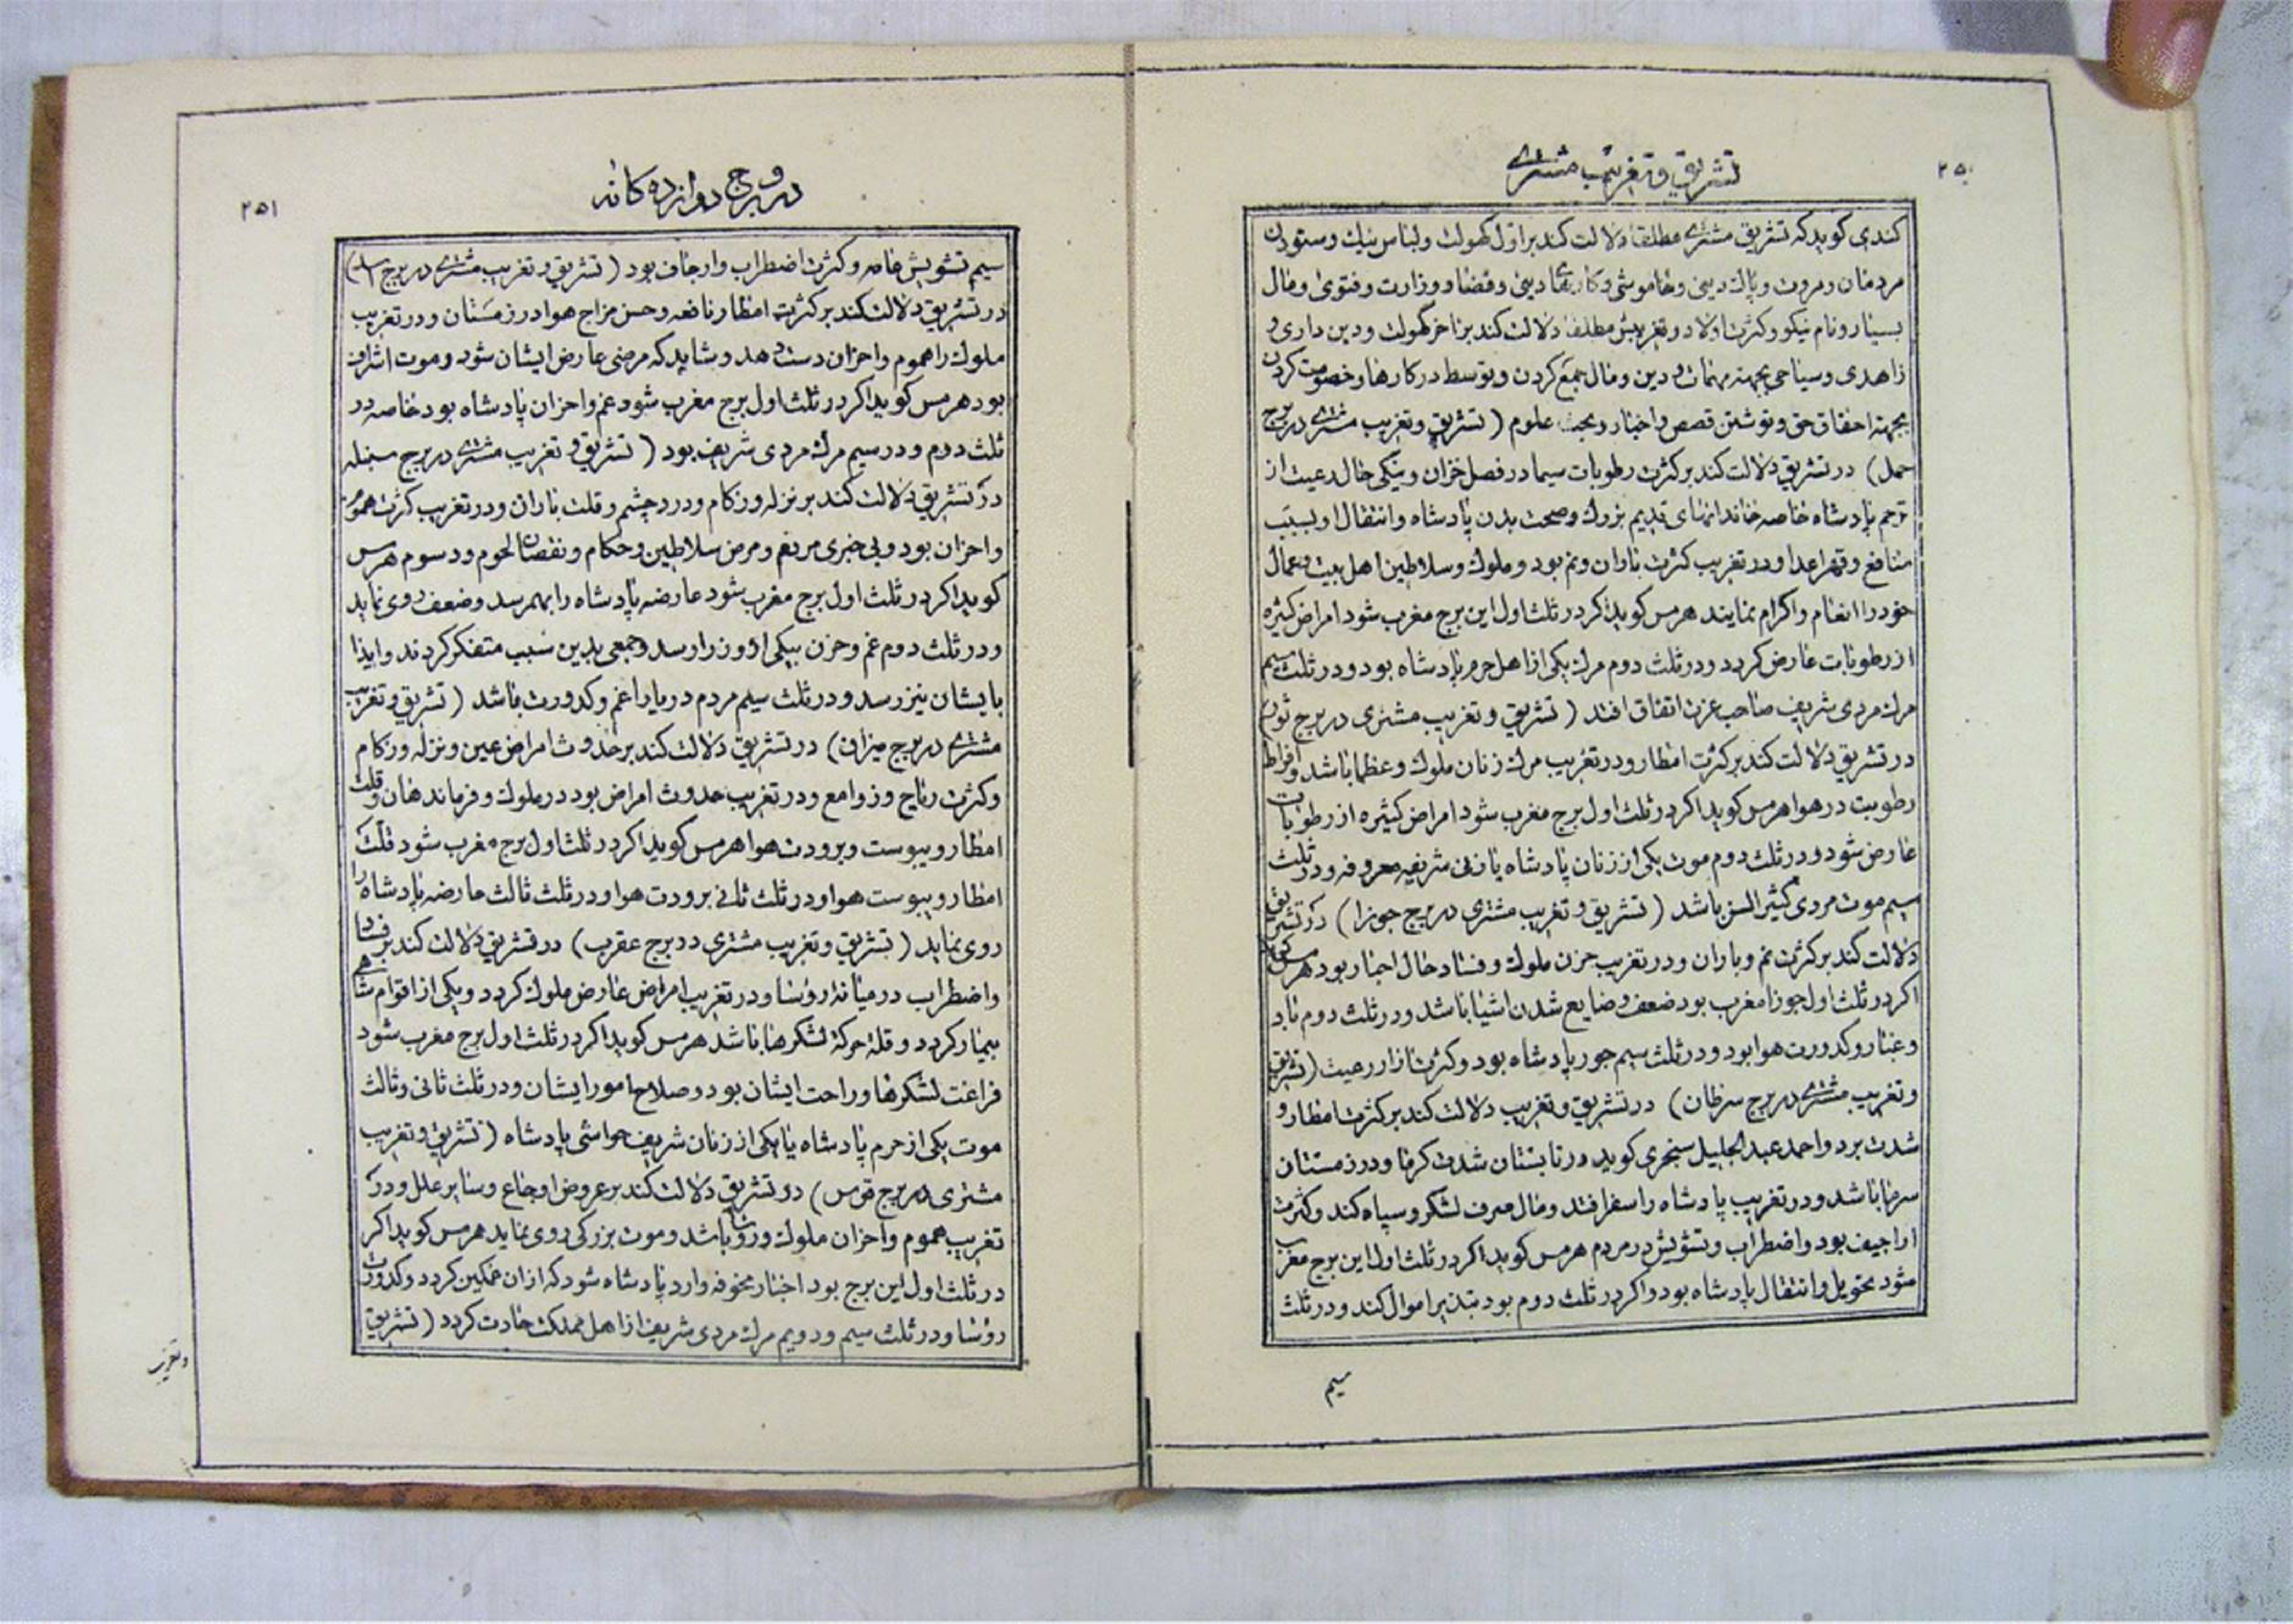 ۲۵۰
تشریق و تغریب مشتری
کندی کوید که تشریق مشتری مطلقا دلالت کند بر اول کهولت و لباس نیک و ستودن
مردمان و مروت و پاک دینی و خاموشی و کارهای دینی و قضا و وزارت و فتوی و مال
بسیار و نام نیکو و کثرت اولاد و تغریبش مطلقا دلالت کند بر آخر کهولت و دین داری و
زاهدی و سیاحی بجهة مهمات و دین و مال جمع کردن و توسط در کارها و خصومت کردن
بجهة احقاق حق و نوشتن قصص و اخبار و بحث علوم ( تشریق و تغریب مشتری در برج
حمل ) در تشریق دلالت کند بر کثرت رطوبات سیما در فصل خزان و نیکی حال رعیت از
ترحم پادشاه خاصه خاندانهای قدیم بزرک و صحت بدن پادشاه و انتقال او بسبب
منافع و قهر اعدا و در تغریب کثرت باران و نم بود و ملوک و سلاطین اهل بیت و عمال
خود را انعام و اکرام نمایند هرمس کوید اکر در ثلث اول این برج مغرب شود امراض کثیره
از رطوبات عارض کردد و در ثلث دوم مرک یکی از اهل حرم پادشاه بود و در ثلث سیم
مرک مردی شریف صاحب عزت اتفاق افتد ( تشریق و تغریب مشتری در برج ثور )
در تشریق دلالت کند بر کثرت امطار و در تغریب مرک زنان ملوک و عظما باشد و افراط
رطوبت در هوا هرمس کوید اکر در ثلث اول برج مغرب شود امراض کثیره از رطوبات
عارض شود و در ثلث دوم موت یکی از زنان پادشاه یا زنی شریفه معروفه و در ثلث
سیم موت مردی کثیر السن باشد ( تشریق و تغریب مشتری در برج جوزا ) در تشریق
دلالت کند بر کثرت نم و باران و در تغریب حزن ملوک و فساد حال احبار بود هرمس کوید
اکر در ثلث اول جوزا مغرب بود ضعف و ضایع شدن اشیا باشد و در ثلث دوم باد
و غبار و کدورت هوا بود و در ثلث سیم جور پادشاه بود و کثرت ازار رعیت ( تشریق
و تغریب مشتری در برج سرطان ) در تشریق و تغریب دلالت کند بر کثرت امطار و
شدت برد و احمد عبد الجلیل سنجری کوید در تابستان شدت کرما و در زمستان
سرما باشد و در تغریب پادشاه را سفر افتد و مال صرف لشکر و سپاه کند و کثرت
اراجیف بود و اضطراب و تشویش در مردم هرمس کوید اکر در ثلث اول این برج مغرب
شود تحویل و انتقال پادشاه بود و اکر در ثلث دوم بود تبذیر اموال کند و در ثلث
سیم
۲۵۱
در بروج دوازده کانه
سیم تشویش عامه و کثرت اضطراب و ارجاف بود ( تشریق و تغریب مشتری در برج اسد )
در تشریق دلالت کند بر کثرت امطار نافعه و حسن مزاج هوا در زمستان و در تغریب
ملوک را هموم و احزان دست دهد و شاید که مرضی عارض ایشان شود و موت اشراف
بود هرمس کوید اکر در ثلث اول برج مغرب شود غم و احزان پادشاه بود خاصه در
ثلث دوم و در سیم مرک مردی شریف بود ( تشریق و تغریب مشتری در برج سنبله
در تشریق دلالت کند بر نزله و زکام و درد چشم و قلت باران و در تغریب کثرت هموم
و احزان بود و بی خبری مردم و مرض سلاطین و حکام و نقصان لحوم و دسوم هرمس
کوید اکر در ثلث اول برج مغرب شود عارضه پادشاه را بهم رسد و ضعف روی نماید
و در ثلث دوم غم و حزن بیکی از وزرا رسد و جمعی بدین سبب متفکر کردند و ایذا
بایشان نیز رسد و در ثلث سیم مردم دریا را غم و کدورت باشد ( تشریق و تغریب
مشتری در برج میزان ) در تشریق دلالت کند بر حدوث امراض عین و نزله و زکام
و کثرت ریاح و زوابع و در تغریب حدوث امراض بود در ملوک و فرماندهان و قلت
امطار و یبوست و برودت هوا هرمس کوید اکر در ثلث اول برج مغرب شود قلت
امطار و یبوست هوا و در ثلث ثانی برودت هوا و در ثلث ثالث عارضه پادشاه را
روی نماید ( تشریق و تغریب مشتری در برج عقرب ) در تشریق دلالت کند بر فساد
و اضطراب در میانه رؤسا و در تغریب امراض عارض ملوک کردد و یکی از اقوام شاهی
بیمار کردد و قلة حرکة لشکرها باشد هرمس کوید اکر در ثلث اول برج مغرب شود
فراغت لشکرها و راحت ایشان بود و صلاح امور ایشان و در ثلث ثانی و ثالث
موت یکی از حرم پادشاه یا یکی از زنان شریف حواشی پادشاه ( تشریق و تغریب
مشتری در برج قوس ) در تشریق دلالت کند بر عروض اوجاع و سایر علل و در
تغریب هموم و احزان ملوک و رؤسا باشد و موت بزرکی روی نماید هرمس کوید اکر
در ثلث اول این برج بود اخبار مخوفه وارد پادشاه شود که از ان غمکین کردد و کدورت
رؤسا و در ثلث سیم و دویم مرک مردی شریف از اهل مملکت حادث کردد ( تشریق
و تغریب